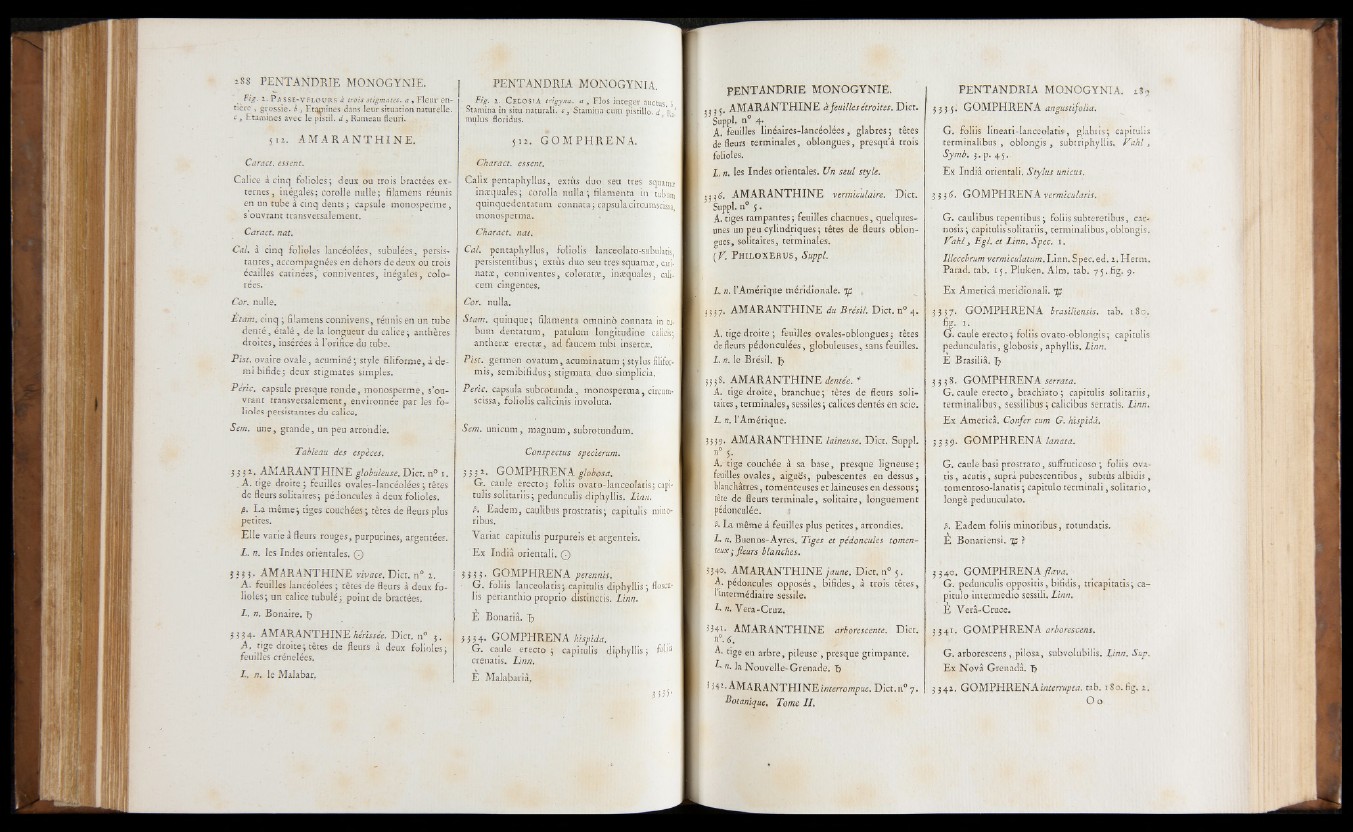 288 PENTANDRIE MONOGYNIE.
Fig. 2. PASSE-VELOURS à trois stigmates. a, Fleur en-
tière, grossie. b, Etamines dans leur situation naturelle.
c, Etamines avec le pistil. d, Rameau fleuri.
512. AMARANTHINE.
Caract. essent.
Calice à cinq folioles; deux ou trois bractées ex-
ternes, inégales; corolle nulle; filamens réunis
en un tube à cinq dents; capsule monosperme,
s'ouvrant transversalement.
Caract. nat.
Cal. à cinq folioles lancéolées, subulées, persis-
tantes, accompagnées en dehors de deux ou trois
écailles carinées, conniventes, inégales, colo-
rées.
Cor. nulle.
Étam. cinq; filamens connivens, réunis en un tube
denté, étalé, de la longueur du calice; anthères
droites, insérées à l'orifice du tube.
Pist. ovaire ovale, acuminé; style filiforme, à de-
mi bifide; deux stigmates simples.
Péric. capsule presque ronde, monosperme, s'ou-
vrant transversalement, environnée par les fo-
lioles persistantes du calice.
Sem. une, grande, un peu arrondie.
Tableau des espèces.
3332. AMARANTHINE globuleuse. Dict. n° 1.
A. tige droite; feuilles ovales-lancéolées; têtes
de fleurs solitaires; pédoncules à deux folioles.
β. La même; tiges couchées; têtes de fleurs plus
petites.
Elle varie à fleurs rouges, purpurines, argentées.
L. n. les Indes orientales. ☉
3333. AMARANTHINE vivace. Dict. n° 2.
A. feuilles lancéolées; têtes de fleurs à deux fo-
lioles; un calice tubulé; point de bractées.
L. n. Bonaire. ♄
3334. AMARANTHINE hérissée. Dict. n° 3.
A. tige droite; têtes de fleurs à deux folioles;
feuilles crénelées.
L. n. le Malabar.
PENTANDRIA MONOGYNIA.
Fig. 2. CELOSIA trigyna. a, Flos integer auctus. b,
Stamina in situ naturali. c, Stamina cum pistillo. d, Ra-
mulus floridus.
512. GOMPHRENA.
Charact. essent.
Calix pentaphyllus, extùs duo seu tres squamæ
inæquales; corolla nulla; filamenta in tubum
quinquedentatum connata; capsula circumscissa,
monosperma.
Charact. nat.
Cal. pentaphyllus, foliolis lanceolato-subulatis,
persistentibus; extùs duo seu tres squamæ, cari-
natæ, conniventes, coloratæ, inæquales, cali-
cem cingentes.
Cor. nulla.
Stam. quinque; filamenta omninò connata in tu-
bum dentatum, patulum longitudine calicis;
antheræ erectæ, ad faucem tubi insertæ.
Pist. germen ovatum, acuminatum; stylus filifor-
mis, semibifidus; stigmata duo simplicia.
Peric. capsula subrotunda, monosperma, circum-
scissa, foliolis calicinis involuta.
Sem. unicum, magnum, subrotundum.
Conspectus specierum.
3332. GOMPHRENA globosa.
G. caule erecto; foliis ovato-lanceolatis; capi-
tulis solitariis; pedunculis diphyllis. Linn.
β. Eadem, caulibus prostratis; capitulis mino-
ribus.
Variat capitulis purpureis et argenteis.
Ex Indiâ orientali. ☉
3333. GOMPHRENA perennis.
G. foliis lanceolatis; capitulis diphyllis; floscu-
lis perianthio proprio distinctis. Linn.
È Bonariâ. ♄
3334. GOMPHRENA hispida.
G. caule erecto; capitulis diphyllis; foliis
crenatis. Linn.
È Malabariâ.
3335.
PENTANDRIE MONOGYNIE.
3335. AMARANTHINE à feuilles étroites. Dict.
Suppl. n° 4.
A. feuilles linéaires-lancéolées, glabres; têtes
de fleurs terminales, oblongues, presqu'à trois
folioles.
L. n. les Indes orientales. Un seul style.
3336. AMARANTHINE vermiculaire. Dict.
Suppl. n° 5.
A. tiges rampantes; feuilles charnues, quelques-
unes un peu cylindriques; têtes de fleurs oblon-
gues, solitaires, terminales.
(V. PHILOXERUS, Suppl.
L. n. l'Amérique méridionale. ♃
3337. AMARANTHINE du Brésil. Dict. n° 4.
A. tige droite; feuilles ovales-oblongues; têtes
de fleurs pédonculées, globuleuses, sans feuilles.
L. n. le Brésil. ♄
3338. AMARANTHINE dentée. *
A. tige droite, branchue; têtes de fleurs soli-
taires, terminales, sessiles; calices dentés en scie.
L. n. l'Amérique.
3339. AMARANTHINE laineuse. Dict. Suppl.
n° 5.
A. tige couchée à sa base, presque ligneuse;
feuilles ovales, aiguës, pubescentes en dessus,
blanchâtres, tomenteuses et laineuses en dessous;
tête de fleurs terminale, solitaire, longuement
pédonculée.
β. La même à feuilles plus petites, arrondies.
L. n. Buenos-Ayres. Tiges et pédoncules tomen-
teux; fleurs blanches.
3340. AMARANTHINE jaune. Dict. n° 5.
A. pédoncules opposés, bifides, à trois têtes,
l'intermédiaire sessile.
L. n. Vera-Cruz.
3341. AMARANTHINE arborescente. Dict.
n°. 6.
A. tige en arbre, pileuse, presque grimpante.
L. n. la Nouvelle-Grenade. ♄
3342. AMARANTHINE interrompue. Dict. n° 7.
Botanique. Tome II.
PENTANDRIA MONOGYNIA. 289
3335. GOMPHRENA angustifolia.
G. foliis lineari-lanceolatis, glabris; capitulis
terminalibus, oblongis, subtriphyllis. Vahl,
Symb. 3. p. 45.
Ex Indiâ orientali. Stylus unicus.
3336. GOMPHRENA vermicularis.
G. caulibus repentibus; foliis subteretibus, car-
nosis; capitulis solitariis, terminalibus, oblongis.
Vahl, Egl. et Linn. Spec. 1.
Illecebrum vermiculatum. Linn. Spec. ed. 2. Herm.
Parad. tab. 15. Pluken. Alm. tab. 75. fig. 9.
Ex Americâ meridionali. ♃
3337. GOMPHRENA brasiliensis. tab. 180.
fig. 1.
G. caule erecto; foliis ovato-oblongis; capitulis
pedunculatis, globosis, aphyllis. Linn.
È Brasiliâ. ♄
3338. GOMPHRENA serrata.
G. caule erecto, brachiato; capitulis solitariis,
terminalibus, sessilibus; calicibus serratis. Linn.
Ex Americâ. Confer cum G. hispidâ.
3339. GOMPHRENA lanata.
G. caule basi prostrato, suffruticoso; foliis ova-
tis, acutis, suprà pubescentibus, subtùs albidis,
tomentoso-lanatis; capitulo terminali, solitario,
longè pedunculato.
β. Eadem foliis minoribus, rotundatis.
È Bonariensi. ♃ ?
3340. GOMPHRENA flava.
G. pedunculis oppositis, bifidis, tricapitatis; ca-
pitulo intermedio sessili. Linn.
È Verâ-Cruce.
3341. GOMPHRENA arborescens.
G. arborescens, pilosa, subvolubilis. Linn. Sup.
Ex Novâ Grenadâ. ♄
3342. GOMPHRENA interrupta. tab. 180. fig. 2.
O o